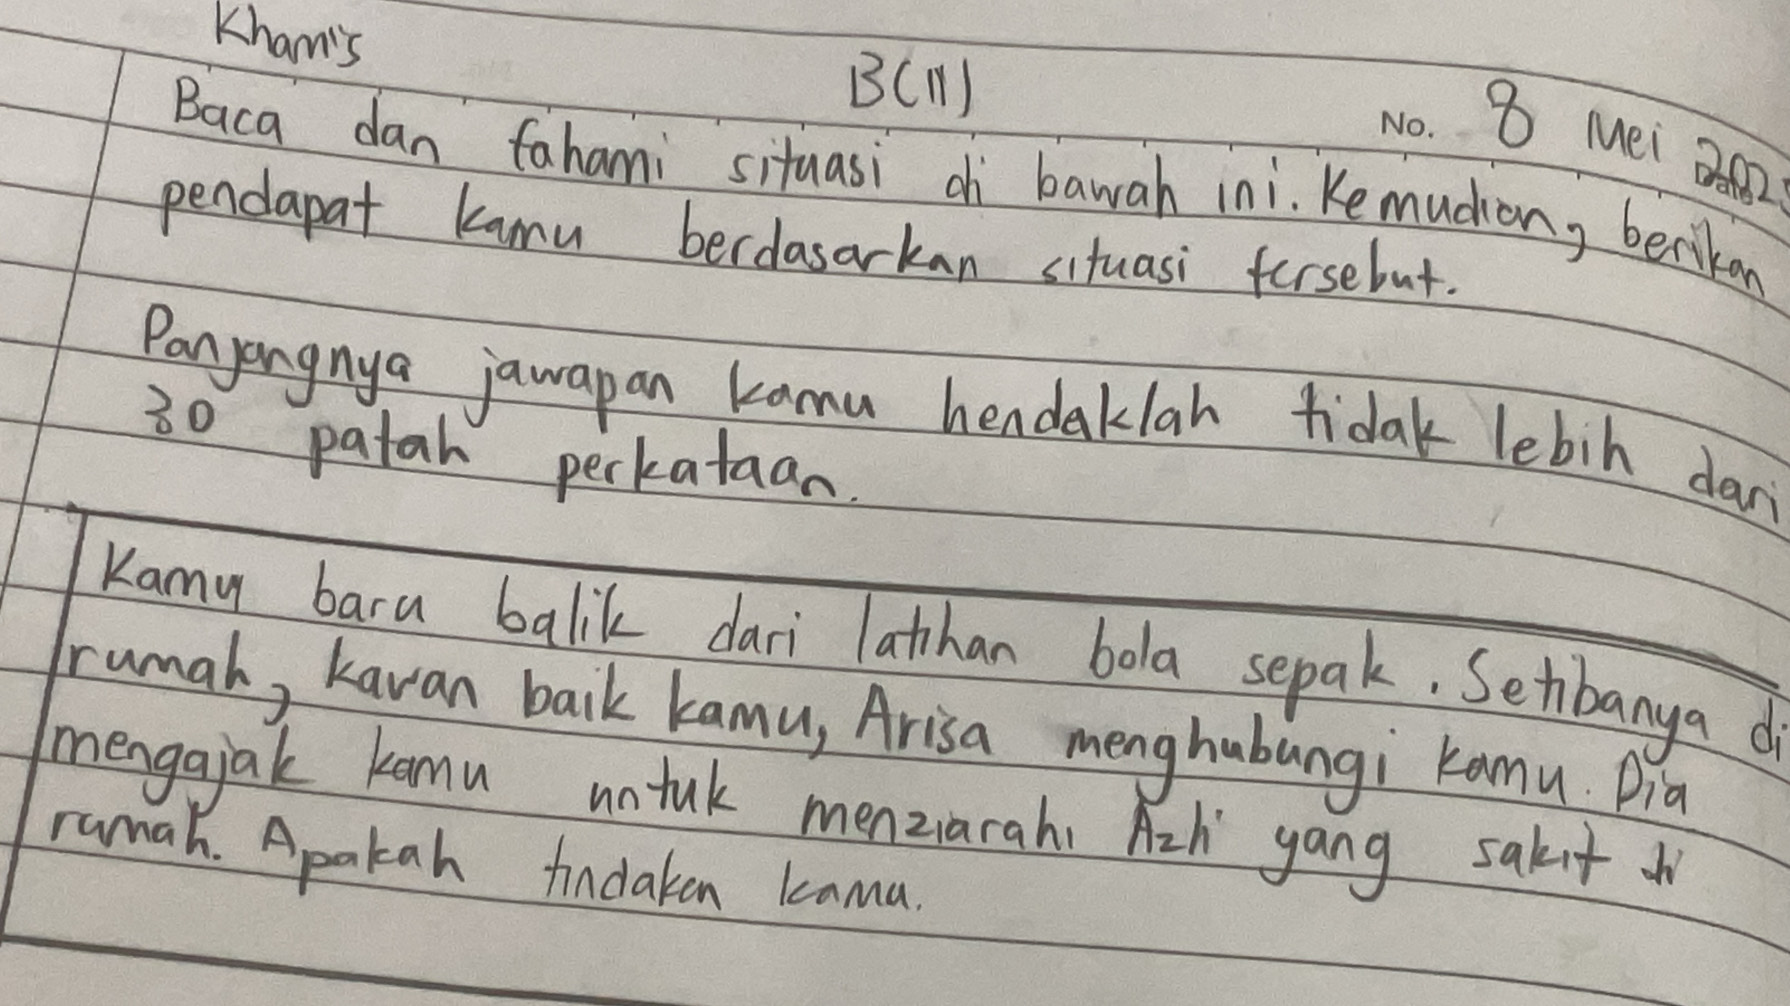 Khamis
B(11)
No. 8 Mei
Baca dan fahami situasi di bawah ini. Kemudian, berikan
pendapat kamu berdasarkan situasi tersebut.
Panjangnya jawapan kamu hendaklah tidak lebih dari
30 patah perkataan.
Kamu baru balik dari latihan bola sepak. Setibanya di
rumah, kawan baik kamu, Arisa menghubungi kamu. Dia
mengajak kamu untuk menziarahi Azli yang sakit di
rumah. Apakah tindakan kamu.